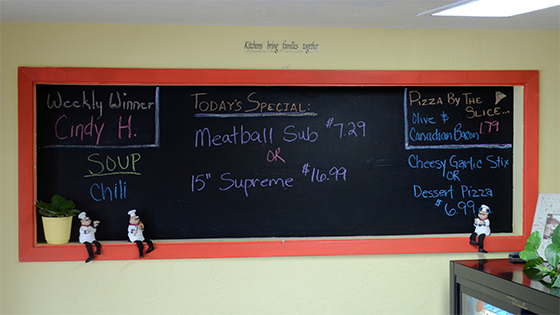 Kitchens bring families together
Weekly Winner
Cindy H.
SOUP
Chili
TODAY'S SPECIAL:
Meatball Sub $7.29
OR
15" Supreme $16.99
PIZZA BY THE
SLICE...
Olive &
Canadian Bacon 1.79
Cheesy Garlic Stix
OR
Dessert Pizza
$6.99